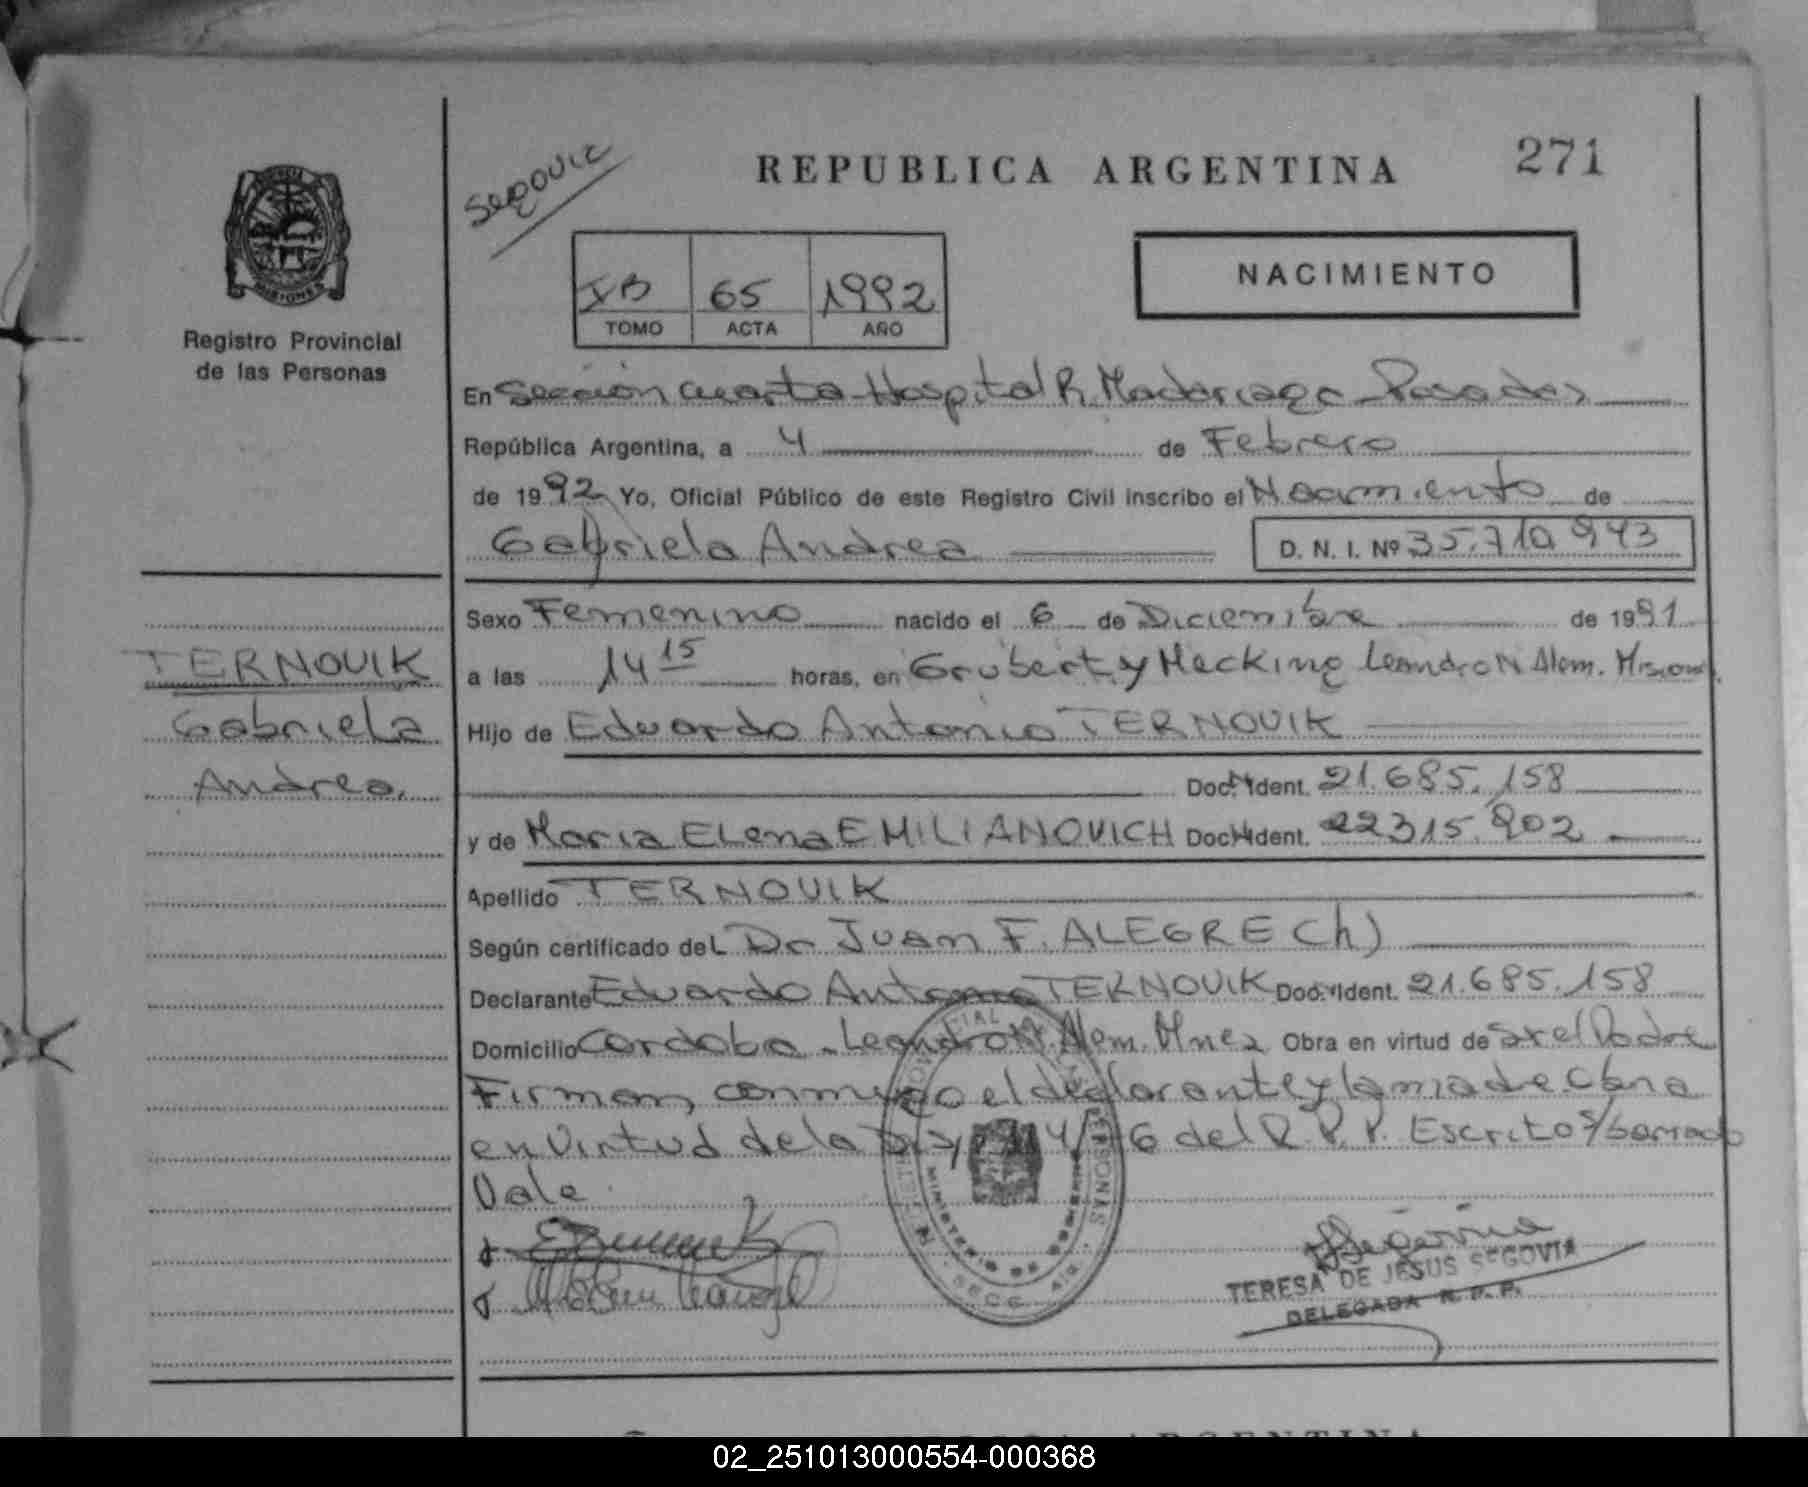 271
REPUBLICA ARGENTINA
Segovia
NACIMIENTO
MISIONES
Registro Provincial
de las Personas
65 1992
TOMO ACTA AÑO
En Sección cuarta Hospital R. Madariaga - Posadas
República Argentina, a 4 de Febrero
de 1992 Yo, Oficial Público de este Registro Civil inscribo el Nacimiento de
Gabriela Andrea D. N. I. Nº 35.710.943
Sexo Femenino nacido el 6 de Diciembre de 1991
a las 14 15 horas, en Grubert y Mecking Leandro N Alem. Misiones.
Hijo de Eduardo Antonio TERNOVIK
Doc. Ident. 21.685.158
y de Maria ELena EMILIANOVICH Doc. Ident. 22315.902
Apellido TERNOVIK
Según certificado deL Dr Juan F. ALEGRE Ch)
Declarante Eduardo Antonio TERNOVIK Doc. Ident. 21.685.158
Domicilio Cordoba - Leandro N. Alem. Mnes Obra en virtud de Ser el Padre
Firman, conmigo el declarante y la madre Obra
en Virtud de la 6 del R. P. P. Escrito s/borrado
Vale.
TERNOVIK
Gabriela
Andrea.
TERESA DE JESUS SEGOVIA
DELEGADA R. P. P.
REPUBLICA ARGENTINA
02_251013000554-000368